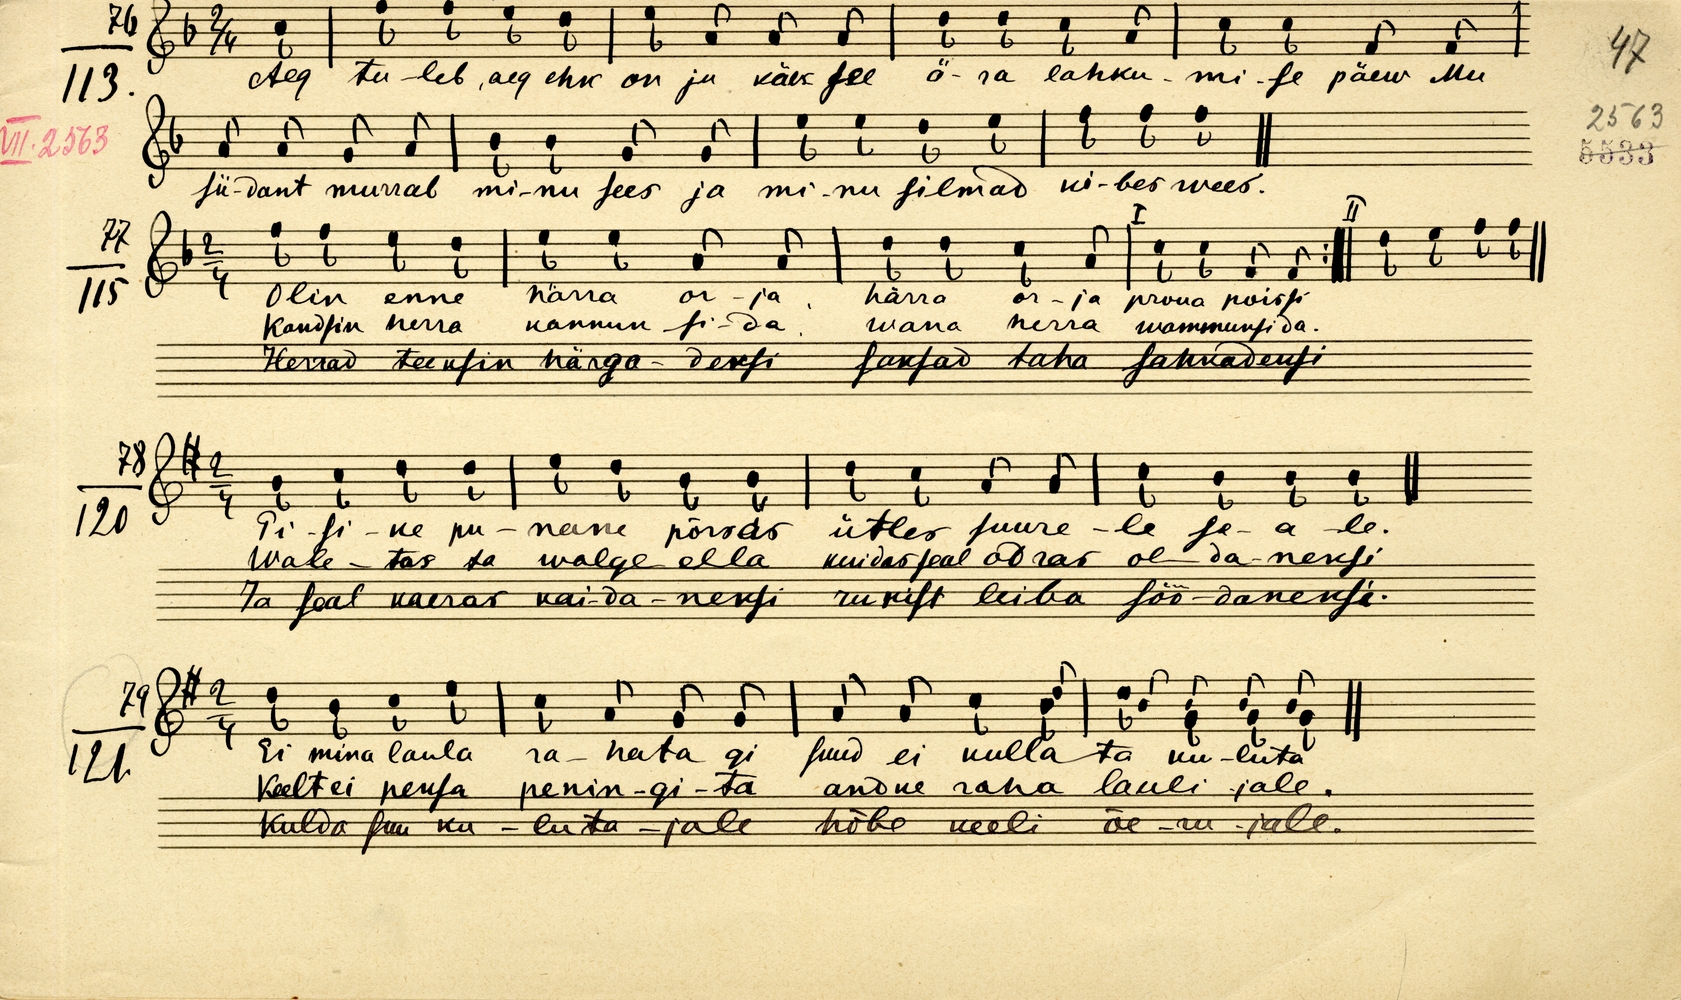 76
113.
47
Aeg tu-leb, aeg ehk on ju käes see ä-ra lahku-mi-se päew Mu
VII. 2563
2563
5533
sü-dant murrab mi-nu sees ja mi-nu silmad ki-bes wees.
77
115
I II
Olin enne härra or-ja, härra or-ja proua poissi
Kandsin herra kannun si-da, wana herra wammunsida.
Herrad teeksin härga-deksi saksad taha sahkadeksi
78
120
Pi-si-ke pu-nane põrsas ütles suure-le se-a-le.
Wale-tas sa walge ella kuidas seal odras ol-da-neksi
Ja seal kaeras kai-da-neksi rukist leiba söö-daneksi.
79
121.
Ei mina laula ra-hata gi suud ei kulla ta ku-luta
Keelt ei peksa penin-gi-ta andke raha lauli-jale.
Kulda suu ku-luta-jale hõbe keeli õe-ru-jale.